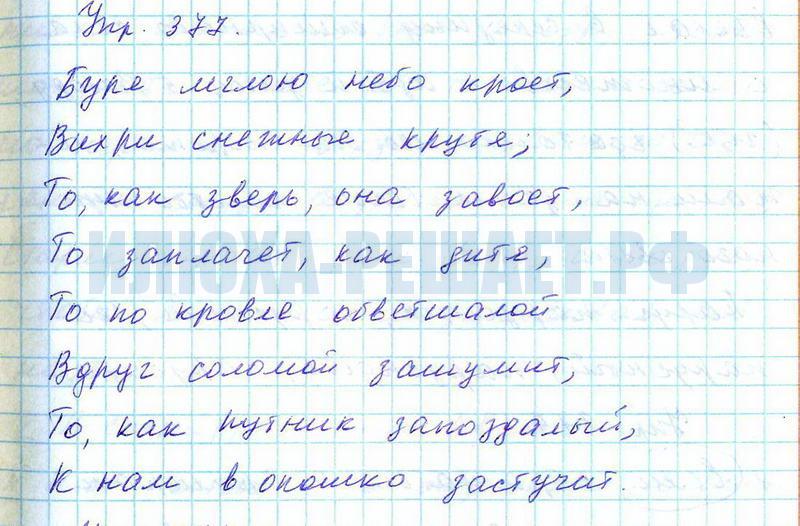 Упр. 377.
Буря мглою небо кроет,
Вихри снежные крутя;
То, как зверь, она завоет,
То заплачет, как дитя,
ИЛЮХА-РЕШАЕТ.РФ
То по кровле обветшалой
Вдруг соломой зашумит,
То, как путник запоздалый,
К нам в окошко застучит.